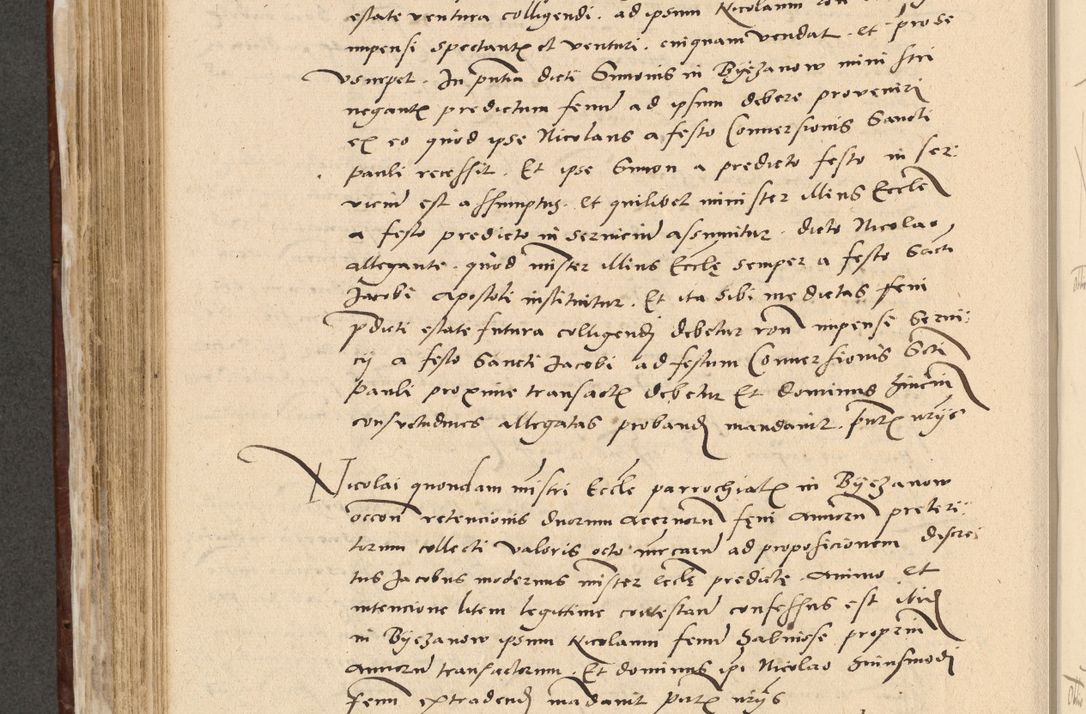 estate ventura colligendi. ad ipsum Nicolaum
impensi spectantem et venturi. cuiquam vendat. et pro se
vsurpet. In pntia dicti Simonis in Byezanow ministri
negantis predictum fenum ad ipsum debere proveniri
ex eo quod ipse Nicolaus a festo Conuersionis Sancti
Pauli recessit. Et ipse Simon a predicto festo in ser-
vicium est assumptus. et quilibet minister illius Eccle
a festo predicto in seruicium assumitur. dicto Nicolao
allegante. quod mister illius Eccle semper a festo Sancti
Jacobi apostoli instituitur. Et ita sibi medietas feni
pdicti estate futura colligendi debetur ron impensi serui-
cij a festo Sancti Jacobi ad festum Conuersionis Scti
Pauli proxime transactum debetur Et dominus
consuetudines allegatas probandi mandauit. pntibus
Nicolai quondam mistri Eccle parrochialis in Byezanow
occon retencionis duorum aceruorum feni annorum preteri-
torum collecti valoris octo mrcarum ad proposicionem discre-
tus Jacobus modernus mister eccle predicte animo et
intencione litem legittime contestandi confessus est ibidem
in Byezanow ipsum Nicolaum fenum habuisse proprium
annorum transactorum. Et dominus ipi Nicolao huiusmodi
fenum extradendum mandauit pntibus